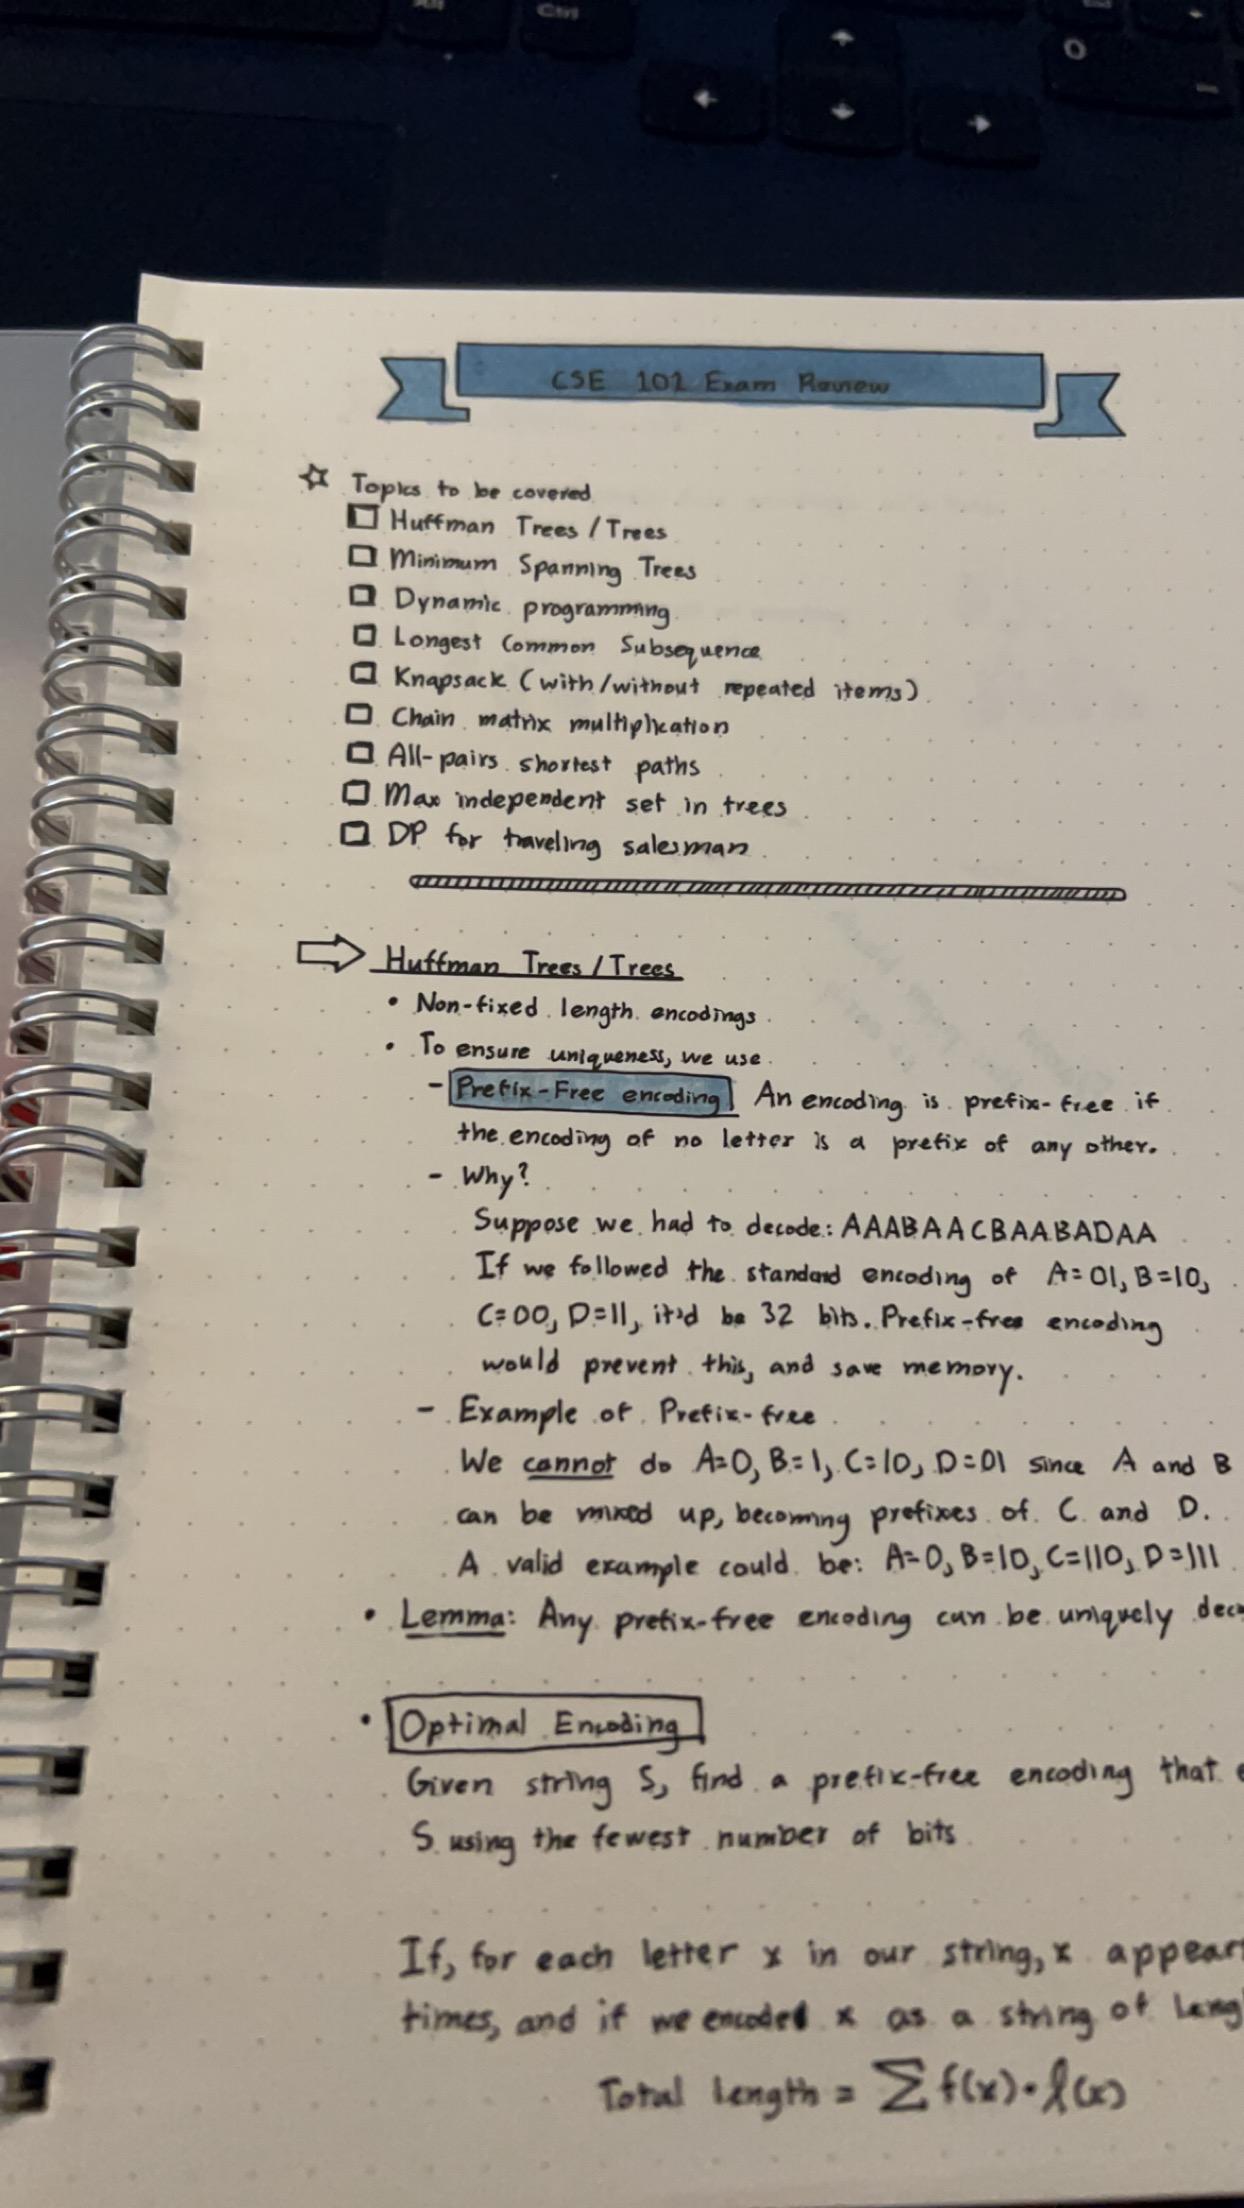 Alt
Ctrl
0
CSE 101 Exam Review
Topics to be covered
Huffman Trees / Trees
Minimum Spanning Trees
Dynamic programming
Longest Common Subsequence
Knapsack (with/without repeated items)
Chain matrix multiplication
All-pairs shortest paths
Max independent set in trees
DP for traveling salesman
Huffman Trees / Trees
• Non-fixed length encodings
• To ensure uniqueness, we use
- Prefix-Free encoding An encoding is prefix-free if
the encoding of no letter is a prefix of any other.
- Why?
Suppose we had to decode: AAABAACBAABADAA
If we followed the standard encoding of A=01, B=10,
C=00, D=11, it'd be 32 bits. Prefix-free encoding
would prevent this, and save memory.
- Example of Prefix-free
We cannot do A=0, B=1, C=10, D=01 since A and B
can be mixed up, becoming prefixes of C and D.
A valid example could be: A=0, B=10, C=110, D=111
• Lemma: Any prefix-free encoding can be uniquely
• Optimal Encoding
Given string S, find a prefix-free encoding that
S using the fewest number of bits
If, for each letter x in our string, x
times, and if we encoded x as a string of
Total length = Σ f(x)·l(x)